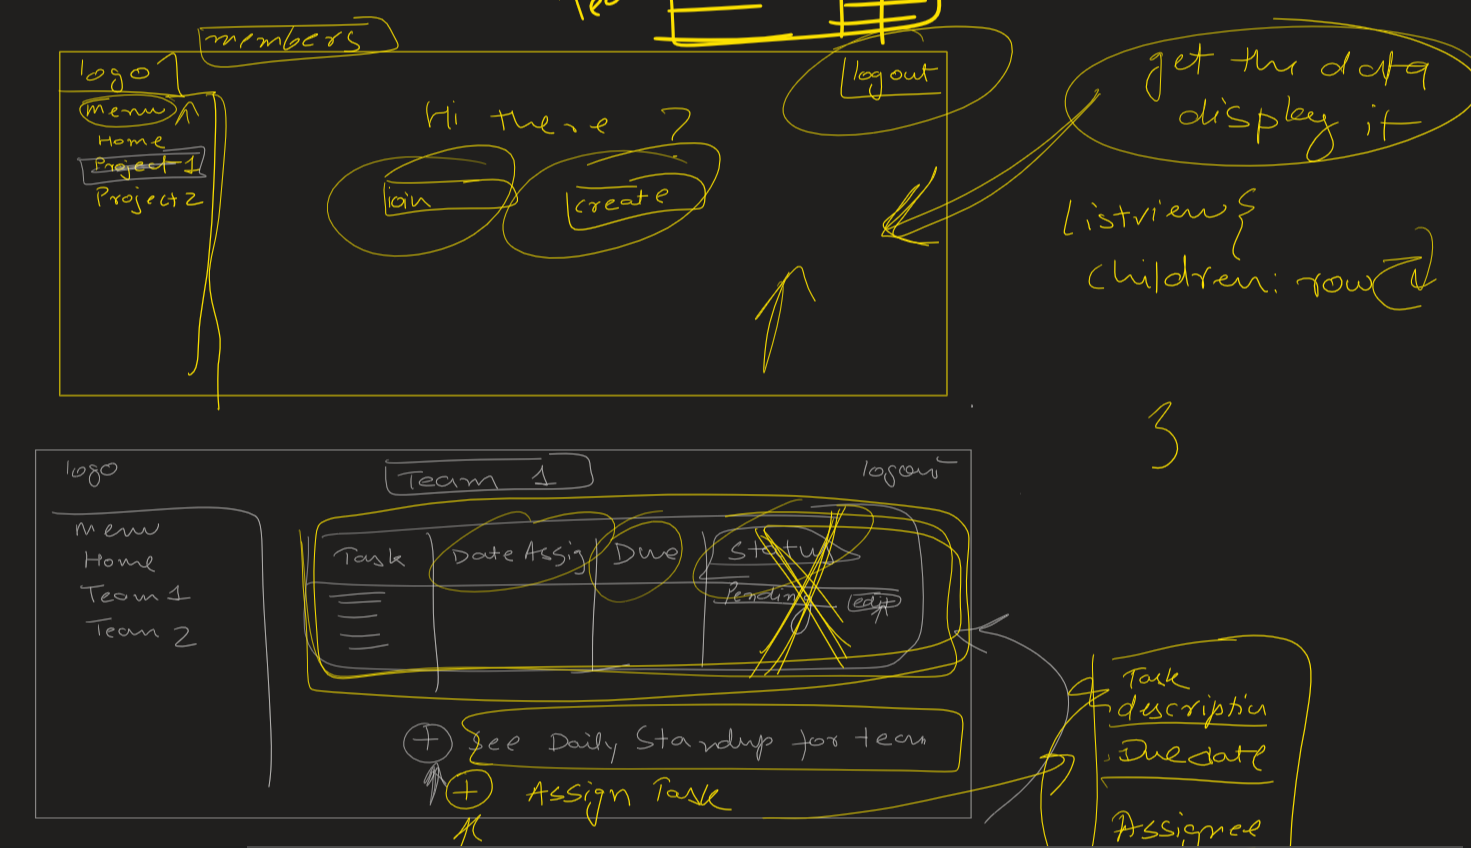 members
logo
logout
menu
Home
Project 1
Project 2
Hi there ?
join
create
get the data
display it
Listview {
children: row
}
logo
Team 1
logout
menu
Home
Team 1
Team 2
Task
Date Assig
Due
Status
Pending
edit
+ See Daily Standup for team
+ Assign Task
Task
description
Due date
Assignee